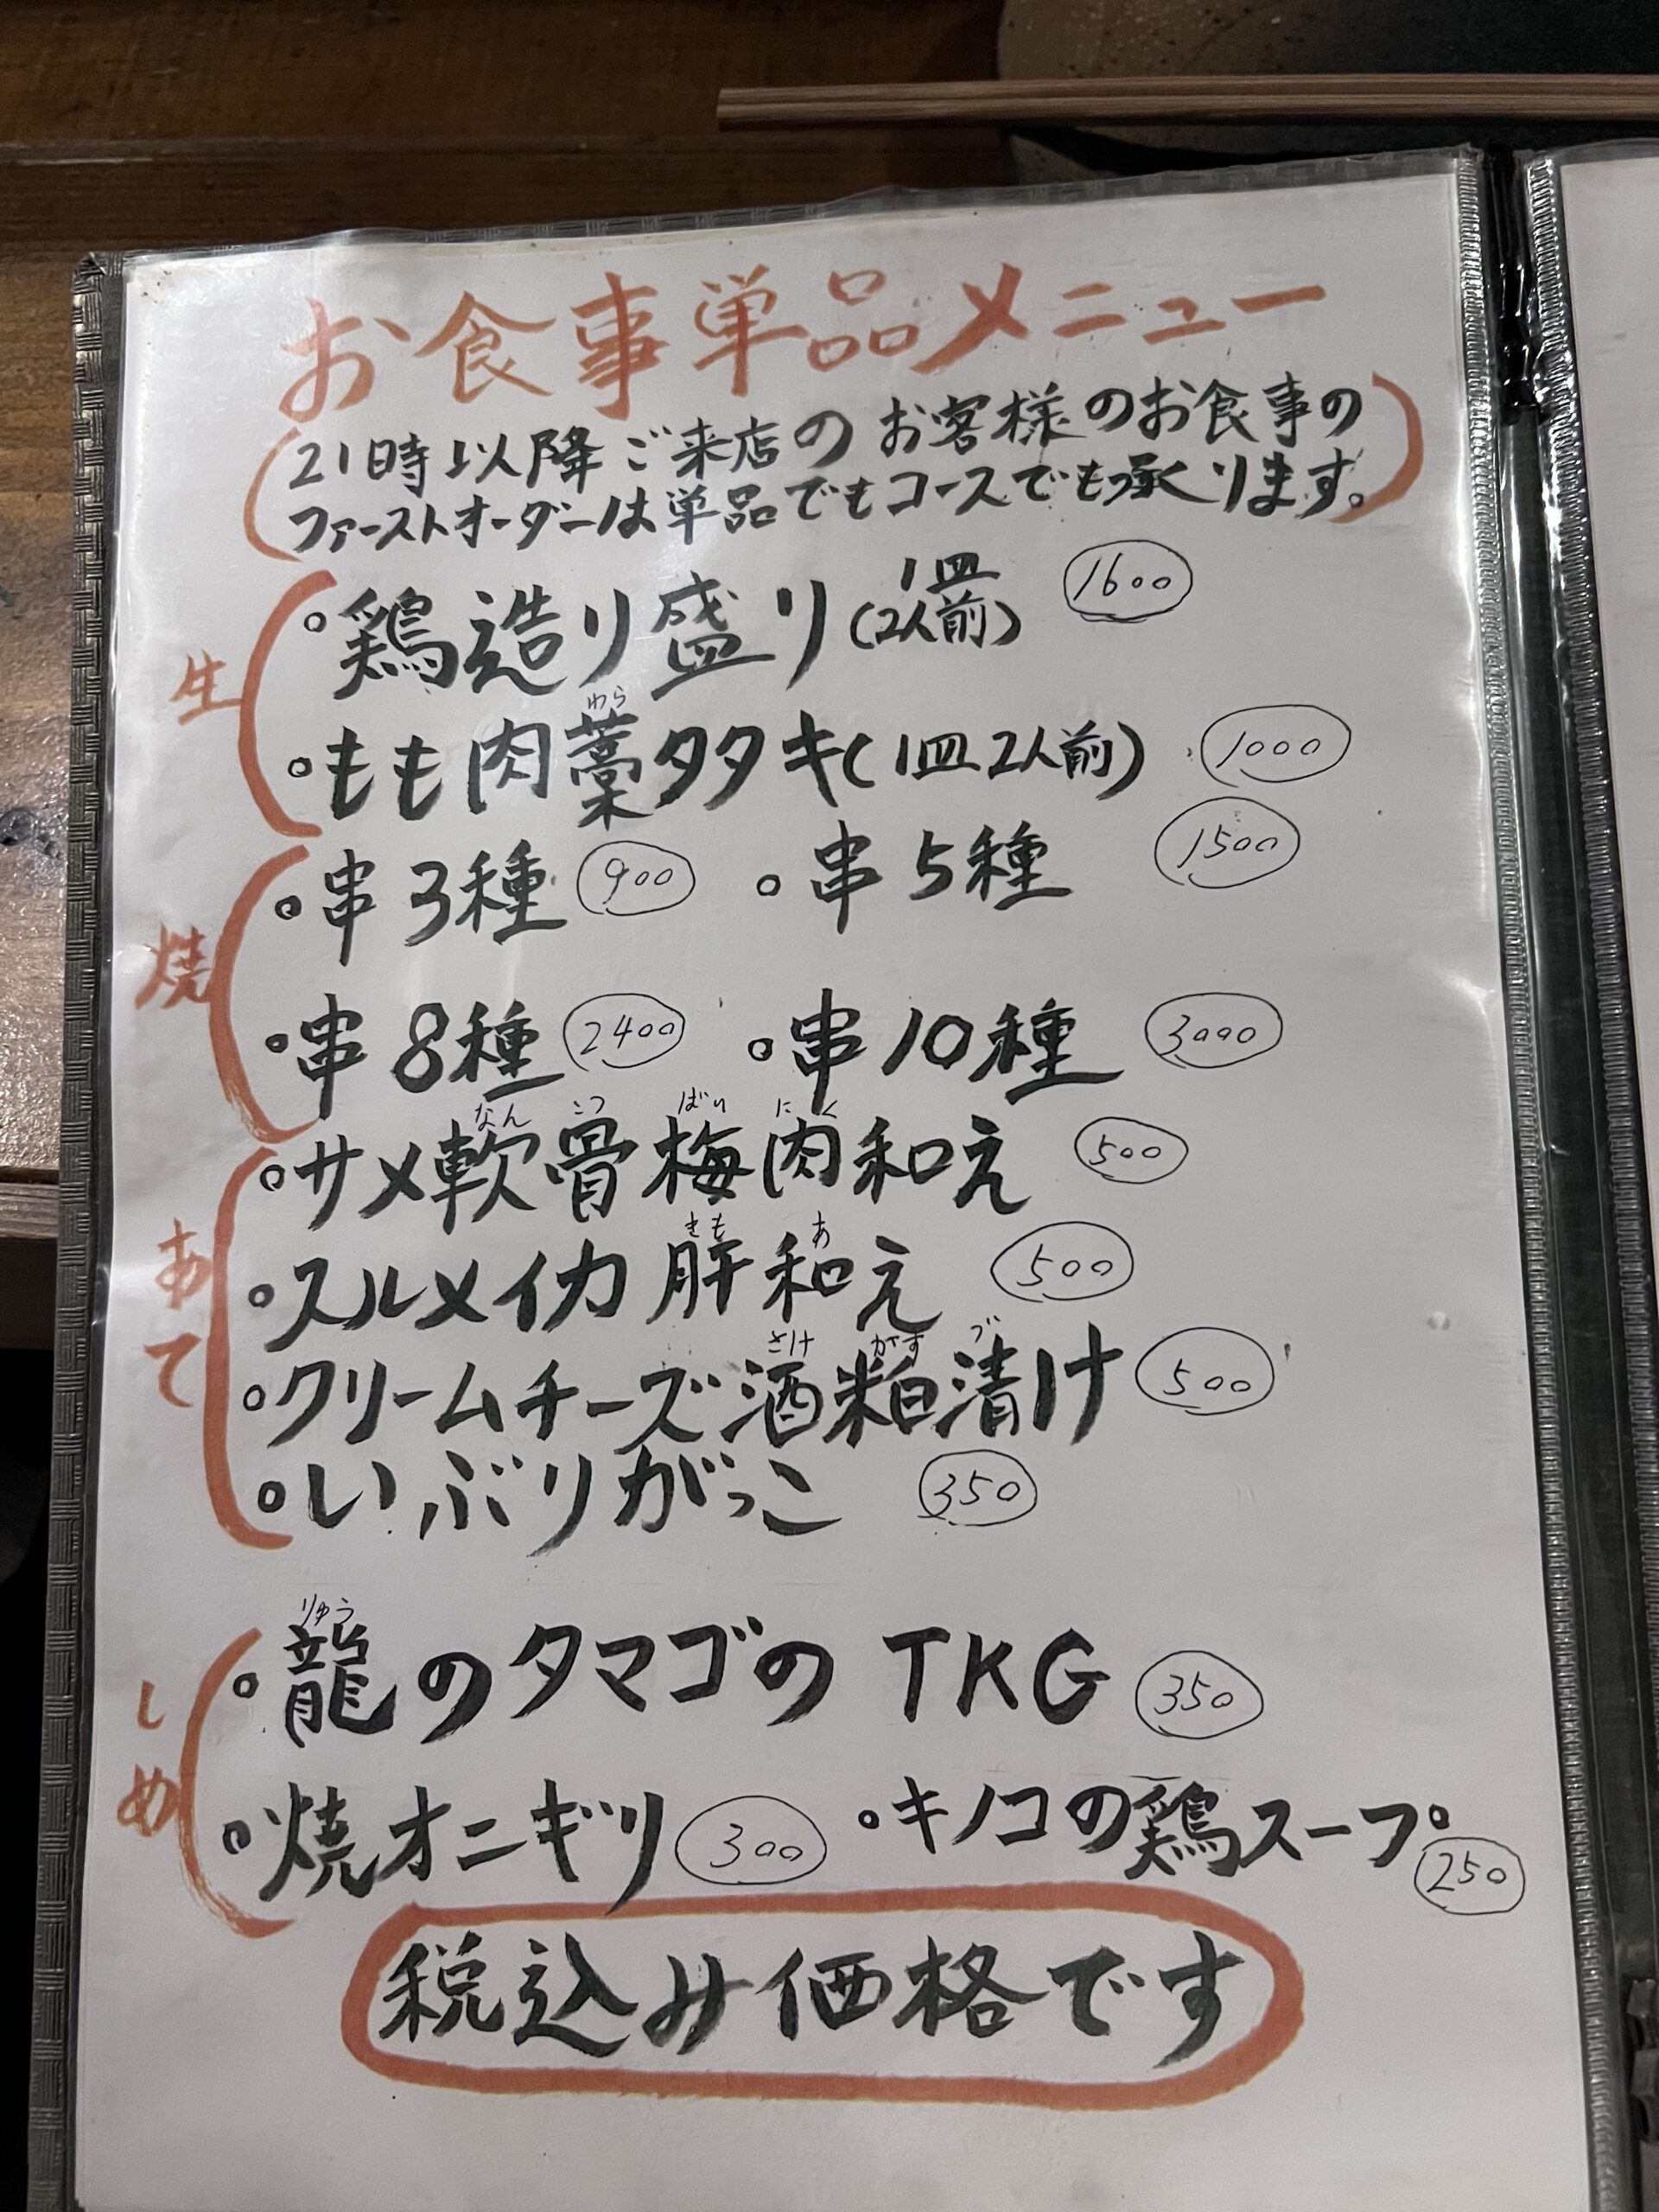 お食事単品メニュー
21時以降ご来店のお客様のお食事の
ファーストオーダーは単品でもコースでも承くります。
生
鶏造り盛り(2人前) 1皿 1600
もも肉藁タタキ(1皿2人前) 1000
わら
焼
串3種 900 串5種 1500
串8種 2400 串10種 3000
あて
なん こつ ばい にく
サメ軟骨梅肉和え 500
きも あ
スルメイカ肝和え 500
さけ がす づ
クリームチーズ酒粕漬け 500
いぶりがっこ 350
しめ
りゅう
龍のタマゴのTKG 350
焼オニギリ 300 キノコの鶏スープ 250
税込み価格です